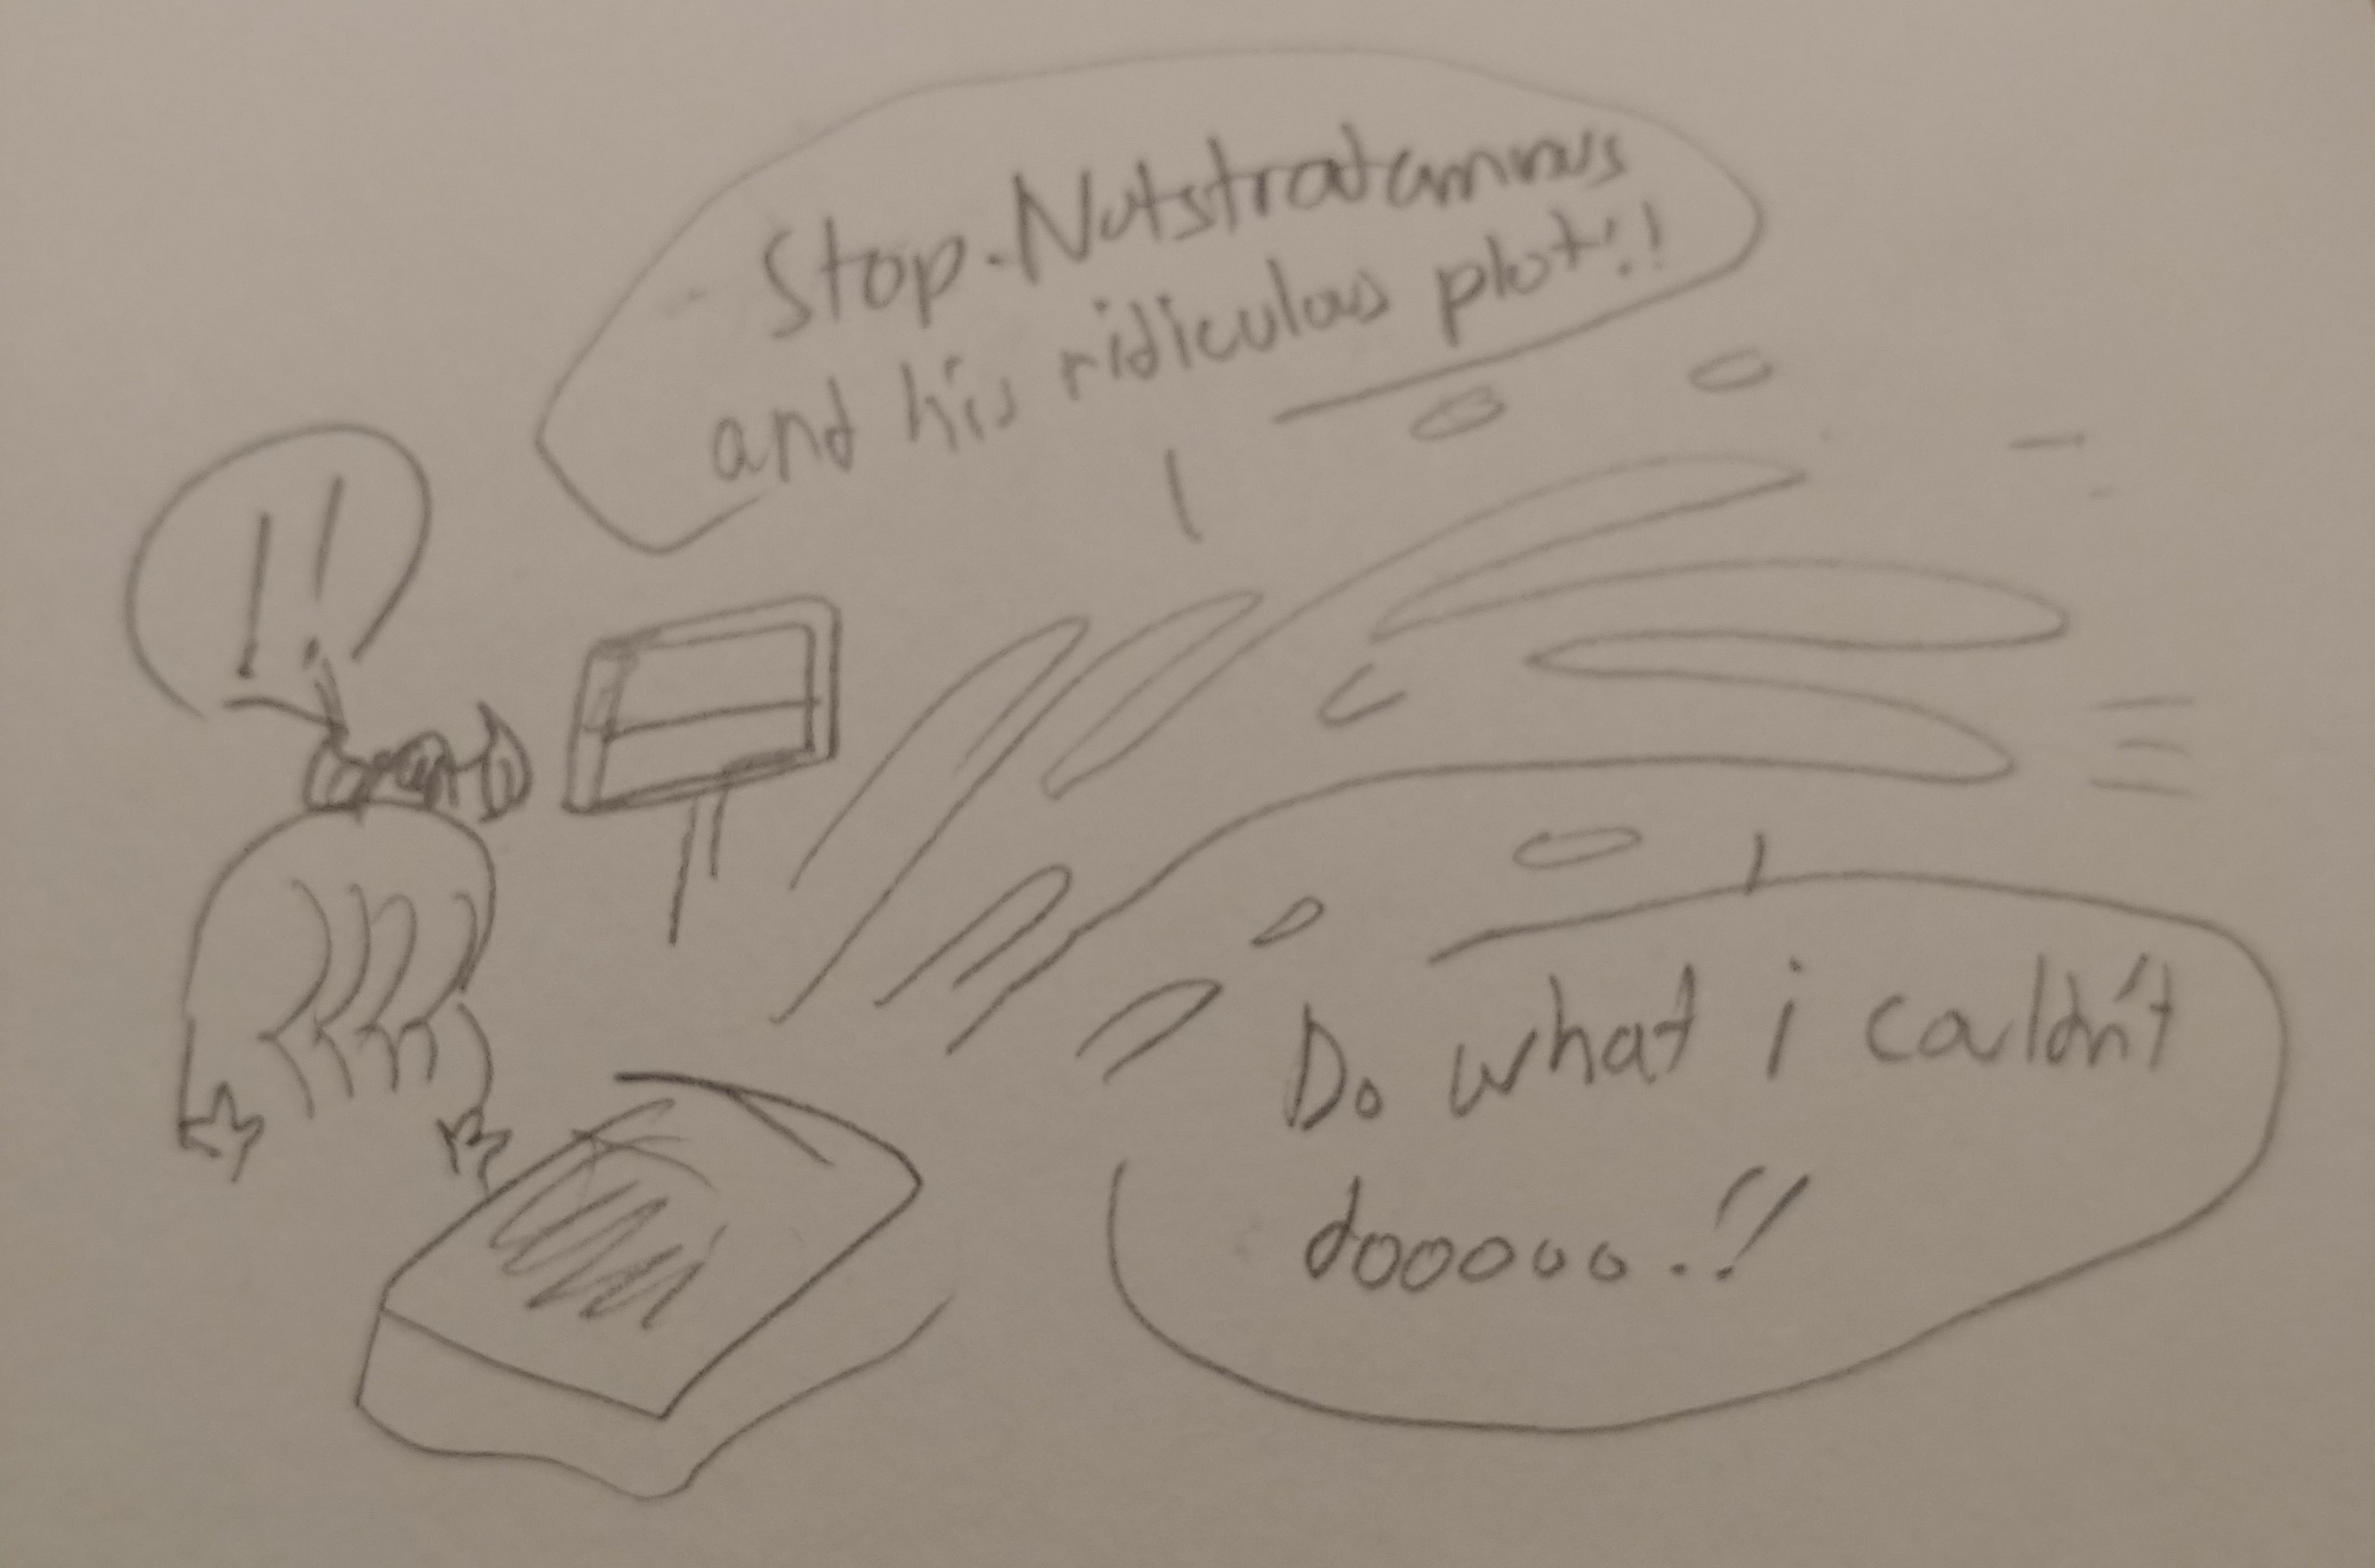 Stop Nutstratamnus
and his ridiculous plot!!
!!
Do what i couldn't
dooooo!!